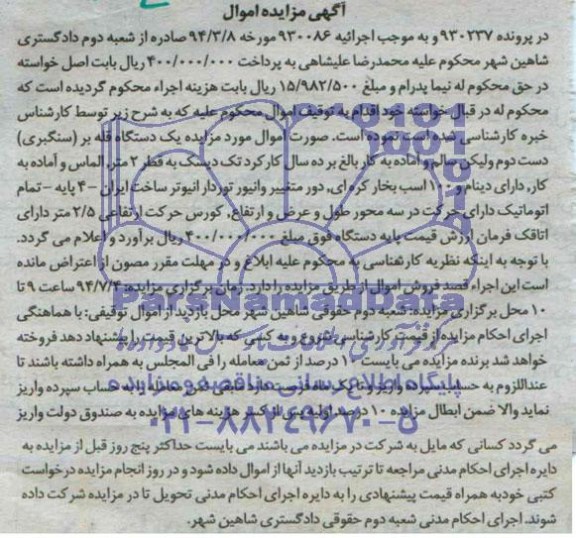 آگهی مزایده اموال
در پرونده ۹۳۰۲۳۷ و به موجب اجرائیه ۹۳۰۰۸۶ مورخه ۹۴/۳/۸ صادره از شعبه دوم دادگستری
شاهین شهر محکوم علیه محمدرضا علیشاهی به پرداخت ۴۰۰/۰۰۰/۰۰۰ ریال بابت اصل خواسته
در حق محکوم له نیما پدرام و مبلغ ۱۵/۹۸۲/۵۰۰ ریال بابت هزینه اجراء محکوم گردیده است که
محکوم له در قبال خواسته خود اقدام به توقیف اموال محکوم علیه که به شرح زیر توسط کارشناس
خبره کارشناسی شده است نموده است. صورت اموال مورد مزایده یک دستگاه قله بر (سنگبری)
دست دوم ولیکن سالم و آماده به کار بالغ بر ده سال کارکرد تک دیسک به قطر ۲ متر، الماس و آماده به
کار, دارای دینام و ۱۰۰ اسب بخار کره ای, دور متغییر وانیور توردار انیوتر ساخت ایران - ۴ پایه - تمام
اتوماتیک دارای حرکت در سه محور طول و عرض و ارتفاع, کورس حرکت ارتفاعی ۲/۵ متر دارای
اتاقک فرمان ارزش قیمت پایه دستگاه فوق مبلغ ۴۰۰/۰۰۰/۰۰۰ ریال براورد و اعلام می گردد.
با توجه به اینکه نظریه کارشناسی به محکوم علیه ابلاغ و در مهلت مقرر مصون از اعتراض مانده
است این اجراء قصد فروش اموال از طریق مزایده را دارد. زمان برگزاری مزایده: ۹۴/۷/۴ ساعت ۹ تا
۱۰ محل برگزاری مزایده: شعبه دوم حقوقی شاهین شهر محل بازدید از اموال توقیفی: با هماهنگی
اجرای احکام مزایده از قیمت کارشناسی شروع و به کسی که بالاترین قیمت را پیشنهاد دهد فروخته
خواهد شد برنده مزایده می بایست ۱۰ درصد از ثمن معامله را فی المجلس به همراه داشته باشند تا
عنداللزوم به حساب سپرده واریز و تا یک ماه فرصت دارد مابقی ثمن معامله را به حساب سپرده واریز
نماید والا ضمن ابطال مزایده ۱۰ درصد اولیه پس از کسر هزینه های مزایده به صندوق دولت واریز
می گردد کسانی که مایل به شرکت در مزایده می باشند می بایست حداکثر پنج روز قبل از مزایده به
دایره اجرای احکام مدنی مراجعه تا ترتیب بازدید آنها از اموال داده شود و در روز انجام مزایده درخواست
کتبی خود به همراه قیمت پیشنهادی را به دایره اجرای احکام مدنی تحویل تا در مزایده شرکت داده
شوند. اجرای احکام مدنی شعبه دوم حقوقی دادگستری شاهین شهر.
ParsNamadData
پایگاه اطلاع رسانی مناقصه و مزایده
۰۲۱-۸۸۳۴۹۶۷۰-۵